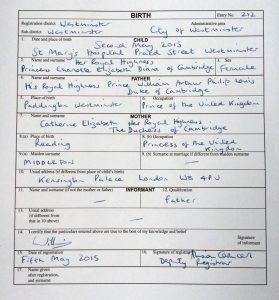 BIRTH
Entry No. 242
Registration district Westminster
Administrative area
Sub-district Westminster
City of Westminster
1. Date and place of birth
CHILD
Second May 2015
St Mary's Hospital Praed Street Westminster
2. Name and surname
Her Royal Highness
Princess Charlotte Elizabeth Diana of Cambridge
3. Sex
Female
4. Name and surname
FATHER
His Royal Highness Prince William Arthur Philip Louis
Duke of Cambridge
5. Place of birth
Paddington Westminster
6. Occupation
Prince of the United Kingdom
7. Name and surname
MOTHER
Catherine Elizabeth Her Royal Highness
The Duchess of Cambridge
8. (a) Place of birth
Reading
8. (b) Occupation
Princess of the United
Kingdom
9. (a) Maiden surname
MIDDLETON
9. (b) Surname at marriage if different from maiden surname
10. Usual address (if different from place of child's birth)
Kensington Palace London W8 4PU
INFORMANT
11. Name and surname (if not the mother or father)
12. Qualification
Father
13. Usual address
(if different from
that in 10 above)
14. I certify that the particulars entered above are true to the best of my knowledge and belief
Signature
of informant
15. Date of registration
Fifth May 2015
16. Signature of registrar
Deputy Registrar
17. Name given
after registration,
and surname